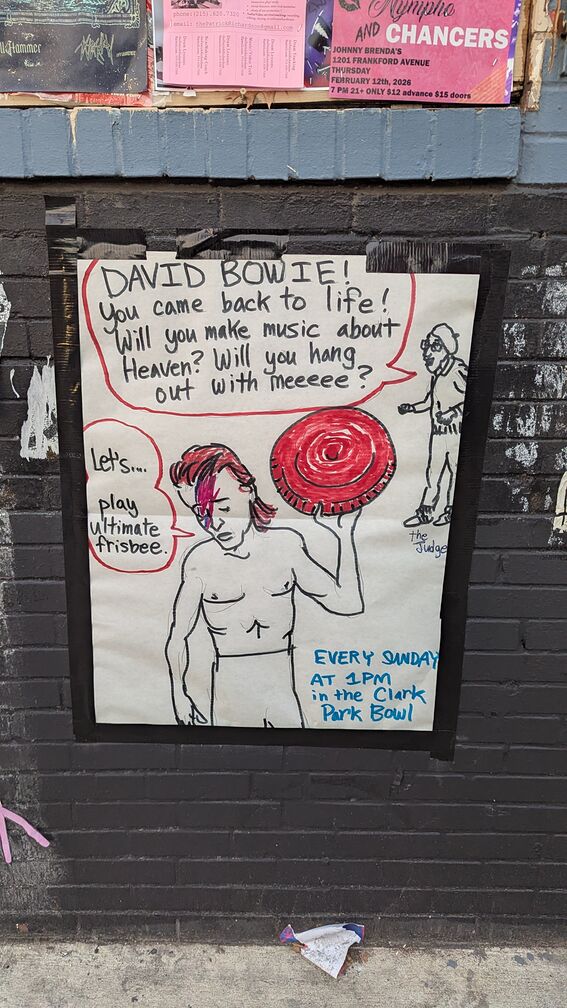 phone:(215).820.7320
email: thePatrickRichardson@gmail.com
Nympho
AND CHANCERS
JOHNNY BRENDA'S
1201 FRANKFORD AVENUE
THURSDAY
FEBRUARY 12th, 2026
7 PM 21+ ONLY $12 advance $15 doors
DAVID BOWIE!
You came back to life!
Will you make music about
Heaven? Will you hang
out with meeeee?
Let's...
play
ultimate
frisbee.
the
Judge
EVERY SUNDAY
AT 1PM
in the Clark
Park Bowl